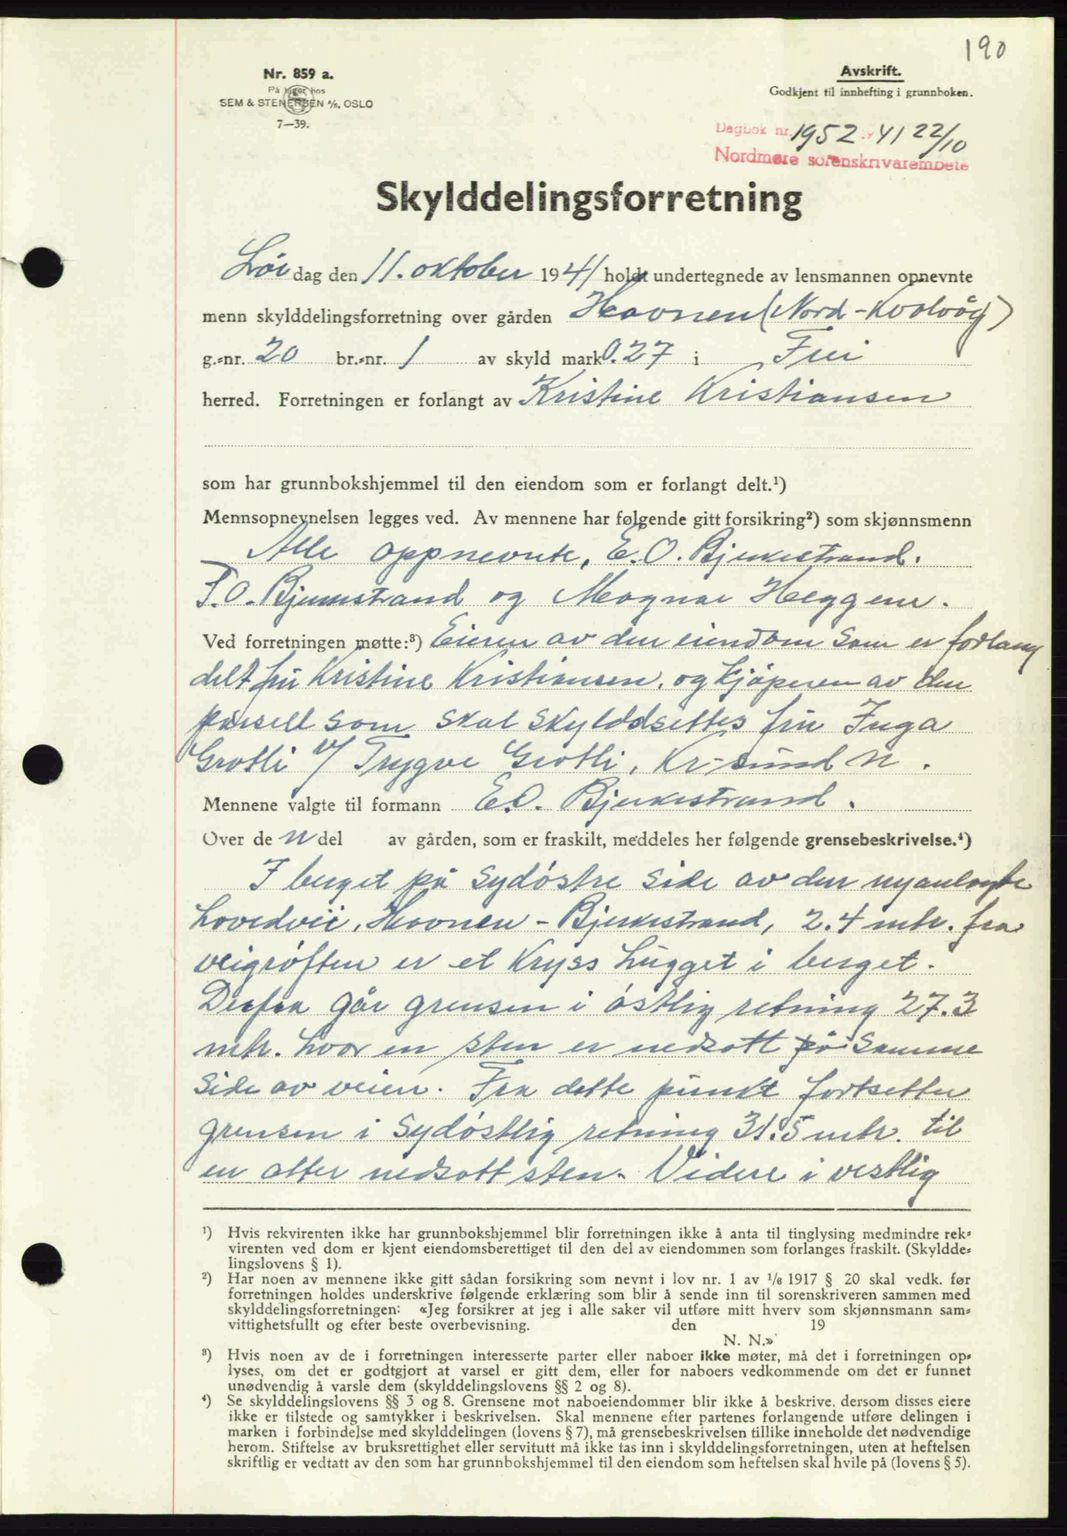 190
Nr. 859 a.
På lager hos
SEM & STENERSEN A/S, OSLO
7—39.
Avskrift.
Godkjent til innhefting i grunnboken.
Dagbok nr. 1952 41 22/10
Nordmøre sorenskrivarembete
Skylddelingsforretning
Lördag den 11. oktober 1941 holdt undertegnede av lensmannen opnevnte
menn skylddelingsforretning over gården Havnen (Nord-Kvalvåg)
g.-nr. 20 br.-nr. 1 av skyld mark 0.27 i Frei
herred. Forretningen er forlangt av Kristine Kristiansen
som har grunnbokshjemmel til den eiendom som er forlangt delt.¹)
Mennsopnevnelsen legges ved. Av mennene har følgende gitt forsikring²) som skjønnsmenn
Alle oppnevnte, E. O. Bjerkestrand.
P. O. Bjerkestrand og Magnar Heggem.
Ved forretningen møtte:³) Eieren av den eiendom som er forlang
delt fru Kristine Kristiansen, og kjöperen av den
parsell som skal skylddsettes fru Inga
Grotli v/ Trygve Grotli, Kr-sund N.
Mennene valgte til formann E. O. Bjerkestrand.
Over den del av gården, som er fraskilt, meddeles her følgende grensebeskrivelse.⁴)
I berget på sydöstre side av den nyanlagte
hovedvei, Havnen - Bjerkestrand, 2.4 mtr. fra
veigröften er et kryss hugget i berget.
Derfra går grensen i östlig retning 27.3
mtr. hvor en sten er nedsatt på samme
side av veien. Fra dette punkt fortsetter
grensen i sydöstlig retning 31.5 mtr. til
en atter nedsatt sten. Videre i vestlig
¹) Hvis rekvirenten ikke har grunnbokshjemmel blir forretningen ikke å anta til tinglysing medmindre rek-
virenten ved dom er kjent eiendomsberettiget til den del av eiendommen som forlanges fraskilt. (Skyldde-
lingslovens § 1).
²) Har noen av mennene ikke gitt sådan forsikring som nevnt i lov nr. 1 av 1/6 1917 § 20 skal vedk. før
forretningen holdes underskrive følgende erklæring som blir å sende inn til sorenskriveren sammen med
skylddelingsforretningen: «Jeg forsikrer at jeg i alle saker vil utføre mitt hverv som skjønnsmann sam-
vittighetsfullt og efter beste overbevisning. den 19
N. N.»
³) Hvis noen av de i forretningen interesserte parter eller naboer ikke møter, må det i forretningen op-
lyses, om det er godtgjort at varsel er gitt dem, eller for naboers vedkommende om det er funnet
unødvendig å varsle dem (skylddelingslovens §§ 2 og 8).
⁴) Se skylddelingslovens §§ 3 og 8. Grensene mot naboeiendommer blir ikke å beskrive, dersom disses eiere
ikke er tilstede og samtykker i beskrivelsen. Skal mennene efter partenes forlangende utføre delingen i
marken i forbindelse med skylddelingen (lovens § 7), må grensebeskrivelsen tillike inneholde det nødvendige
herom. Stiftelse av bruksrettighet eller servitutt må ikke tas inn i skylddelingsforretningen, uten at heftelsen
skriftlig er vedtatt av den som har grunnbokshjemmel til den eiendom som heftelsen skal hvile på (lovens § 5).